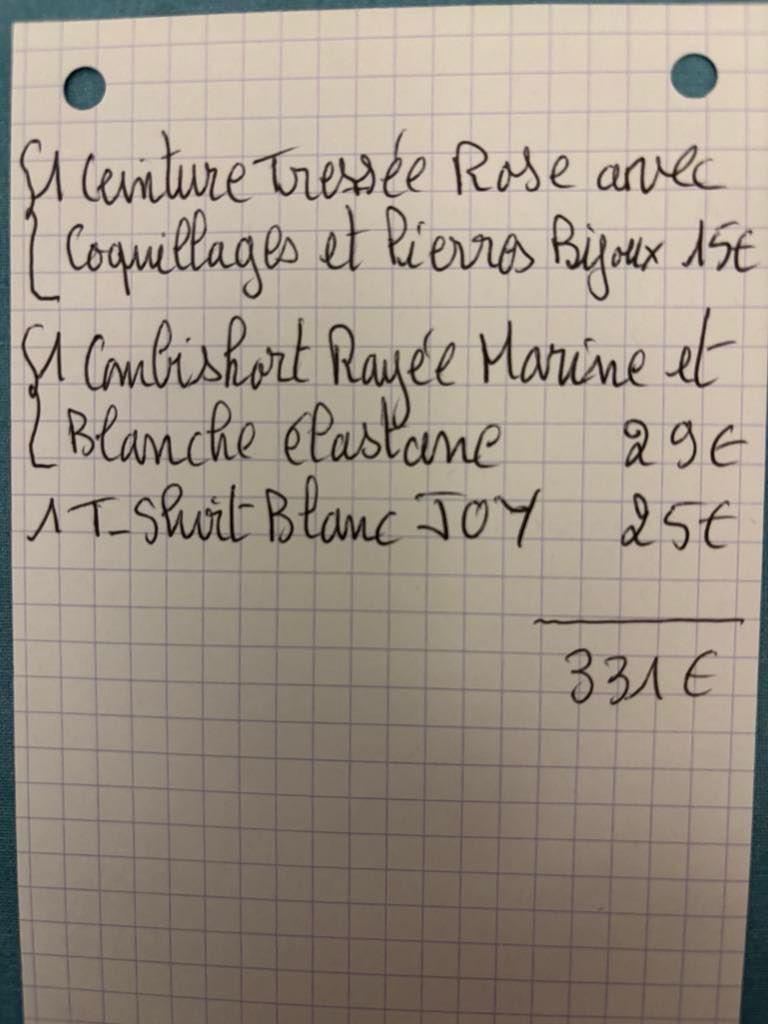 1 Ceinture Tressée Rose avec
Coquillages et Pierres Bijoux 15€
1 Combishort Rayée Marine et
Blanche élastane 29€
1 T-Shirt Blanc JOY 25€
331€